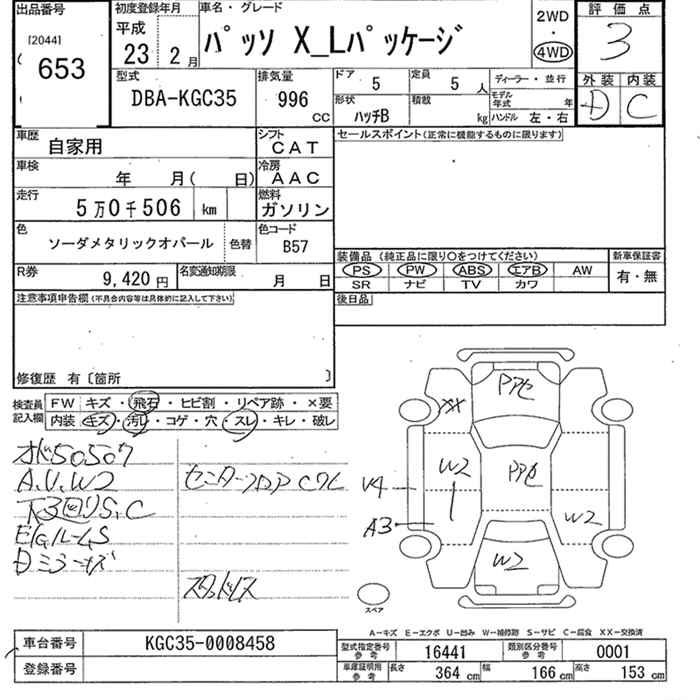 出品番号 初度登録年月 車名・グレード 2WD 評価点
[2044] 平成
653 23 2月 パッソ X_Lパッケージ 4WD 3
型式 排気量 ドア 5 定員 5人 ディーラー・並行 外装 内装
DBA-KGC35 996 CC 形状 ハッチB 積載 kg モデル年式 年 ハンドル 左・右 D C
車歴 自家用 シフト CAT セールスポイント(正常に機能するものに限ります)
車検 年 月( 日) 冷房 AAC
走行 5万0千506 km 燃料 ガソリン
色 ソーダメタリックオパール 色替 色コード B57
装備品(純正品に限り○をつけてください) 新車保証書
R券 9,420円 名変通知期限 月 日 PS PW ABS エアB AW 有・無
SR ナビ TV カワ
注意事項申告欄(不具合内容等は具体的に記入して下さい) 後日品
修復歴 有〔箇所 〕
検査員記入欄 FW キズ・飛石・ヒビ割・リペア跡・×要
内装 キズ・汚レ・コゲ・穴・スレ・キレ・破レ
PP色
XX
オド50507
A.U.W2 センターフロア
W2 PP色
U4
下回りS,C A3 W2
EGルームS
Dミラーキズ W2
スタッドレス
スペア
A-キズ E-エクボ U-凹み W-補修跡 S-サビ C-腐食 XX-交換済
車台番号 KGC35-0008458 型式指定番号 参考 16441 類別区分番号 参考 0001
登録番号 車庫証明用 参考 長さ 364 cm 幅 166 cm 高さ 153 cm